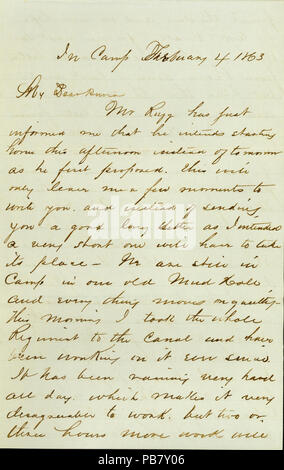 In Camp February 4 1863
My Dear Anna
Mr Rugg has just
informed me that he intends starting
home this afternoon instead of tomorrow
as he first proposed. This will
only leave me a few moments to
write you. and instead of sending
you a good long letter as I intended
a very short one will have to take
its place— We are still in
Camp in our old Mud Hole
and every thing moves on quietly.
This Morning I took the whole
Regiment to the Canal and have
been working on it ever since.
It has been raining very hard
all day. which makes it very
disagreeable to work. but two or
three hours more work will
alamy
alamy stock photo
PB7Y06